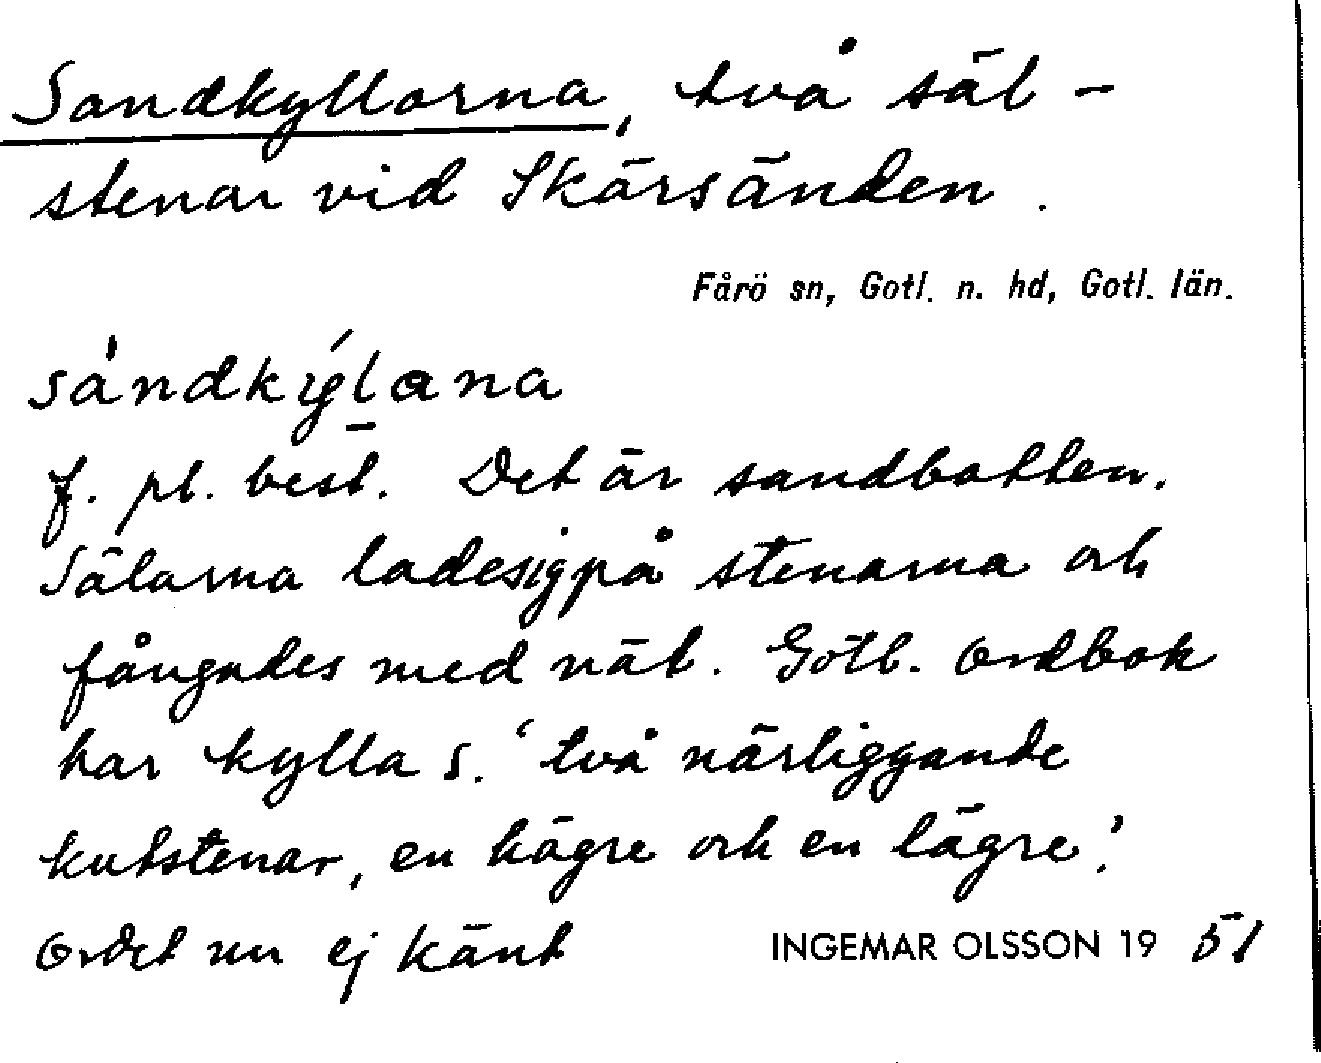 Sandkyllorna, två säl-
stenar vid Skärsänden.
Fårö sn, Gotl. n. hd, Gotl. län.
sàndkýl̲ana
f. pl. best. Det är sandbotten.
Sälarna lade sig på stenarna och
fångades med nät. Gotl. Ordbok
har kylla s. 'två närliggande
kutstenar, en högre och en lägre'.
Ordet nu ej känt
INGEMAR OLSSON 19 51